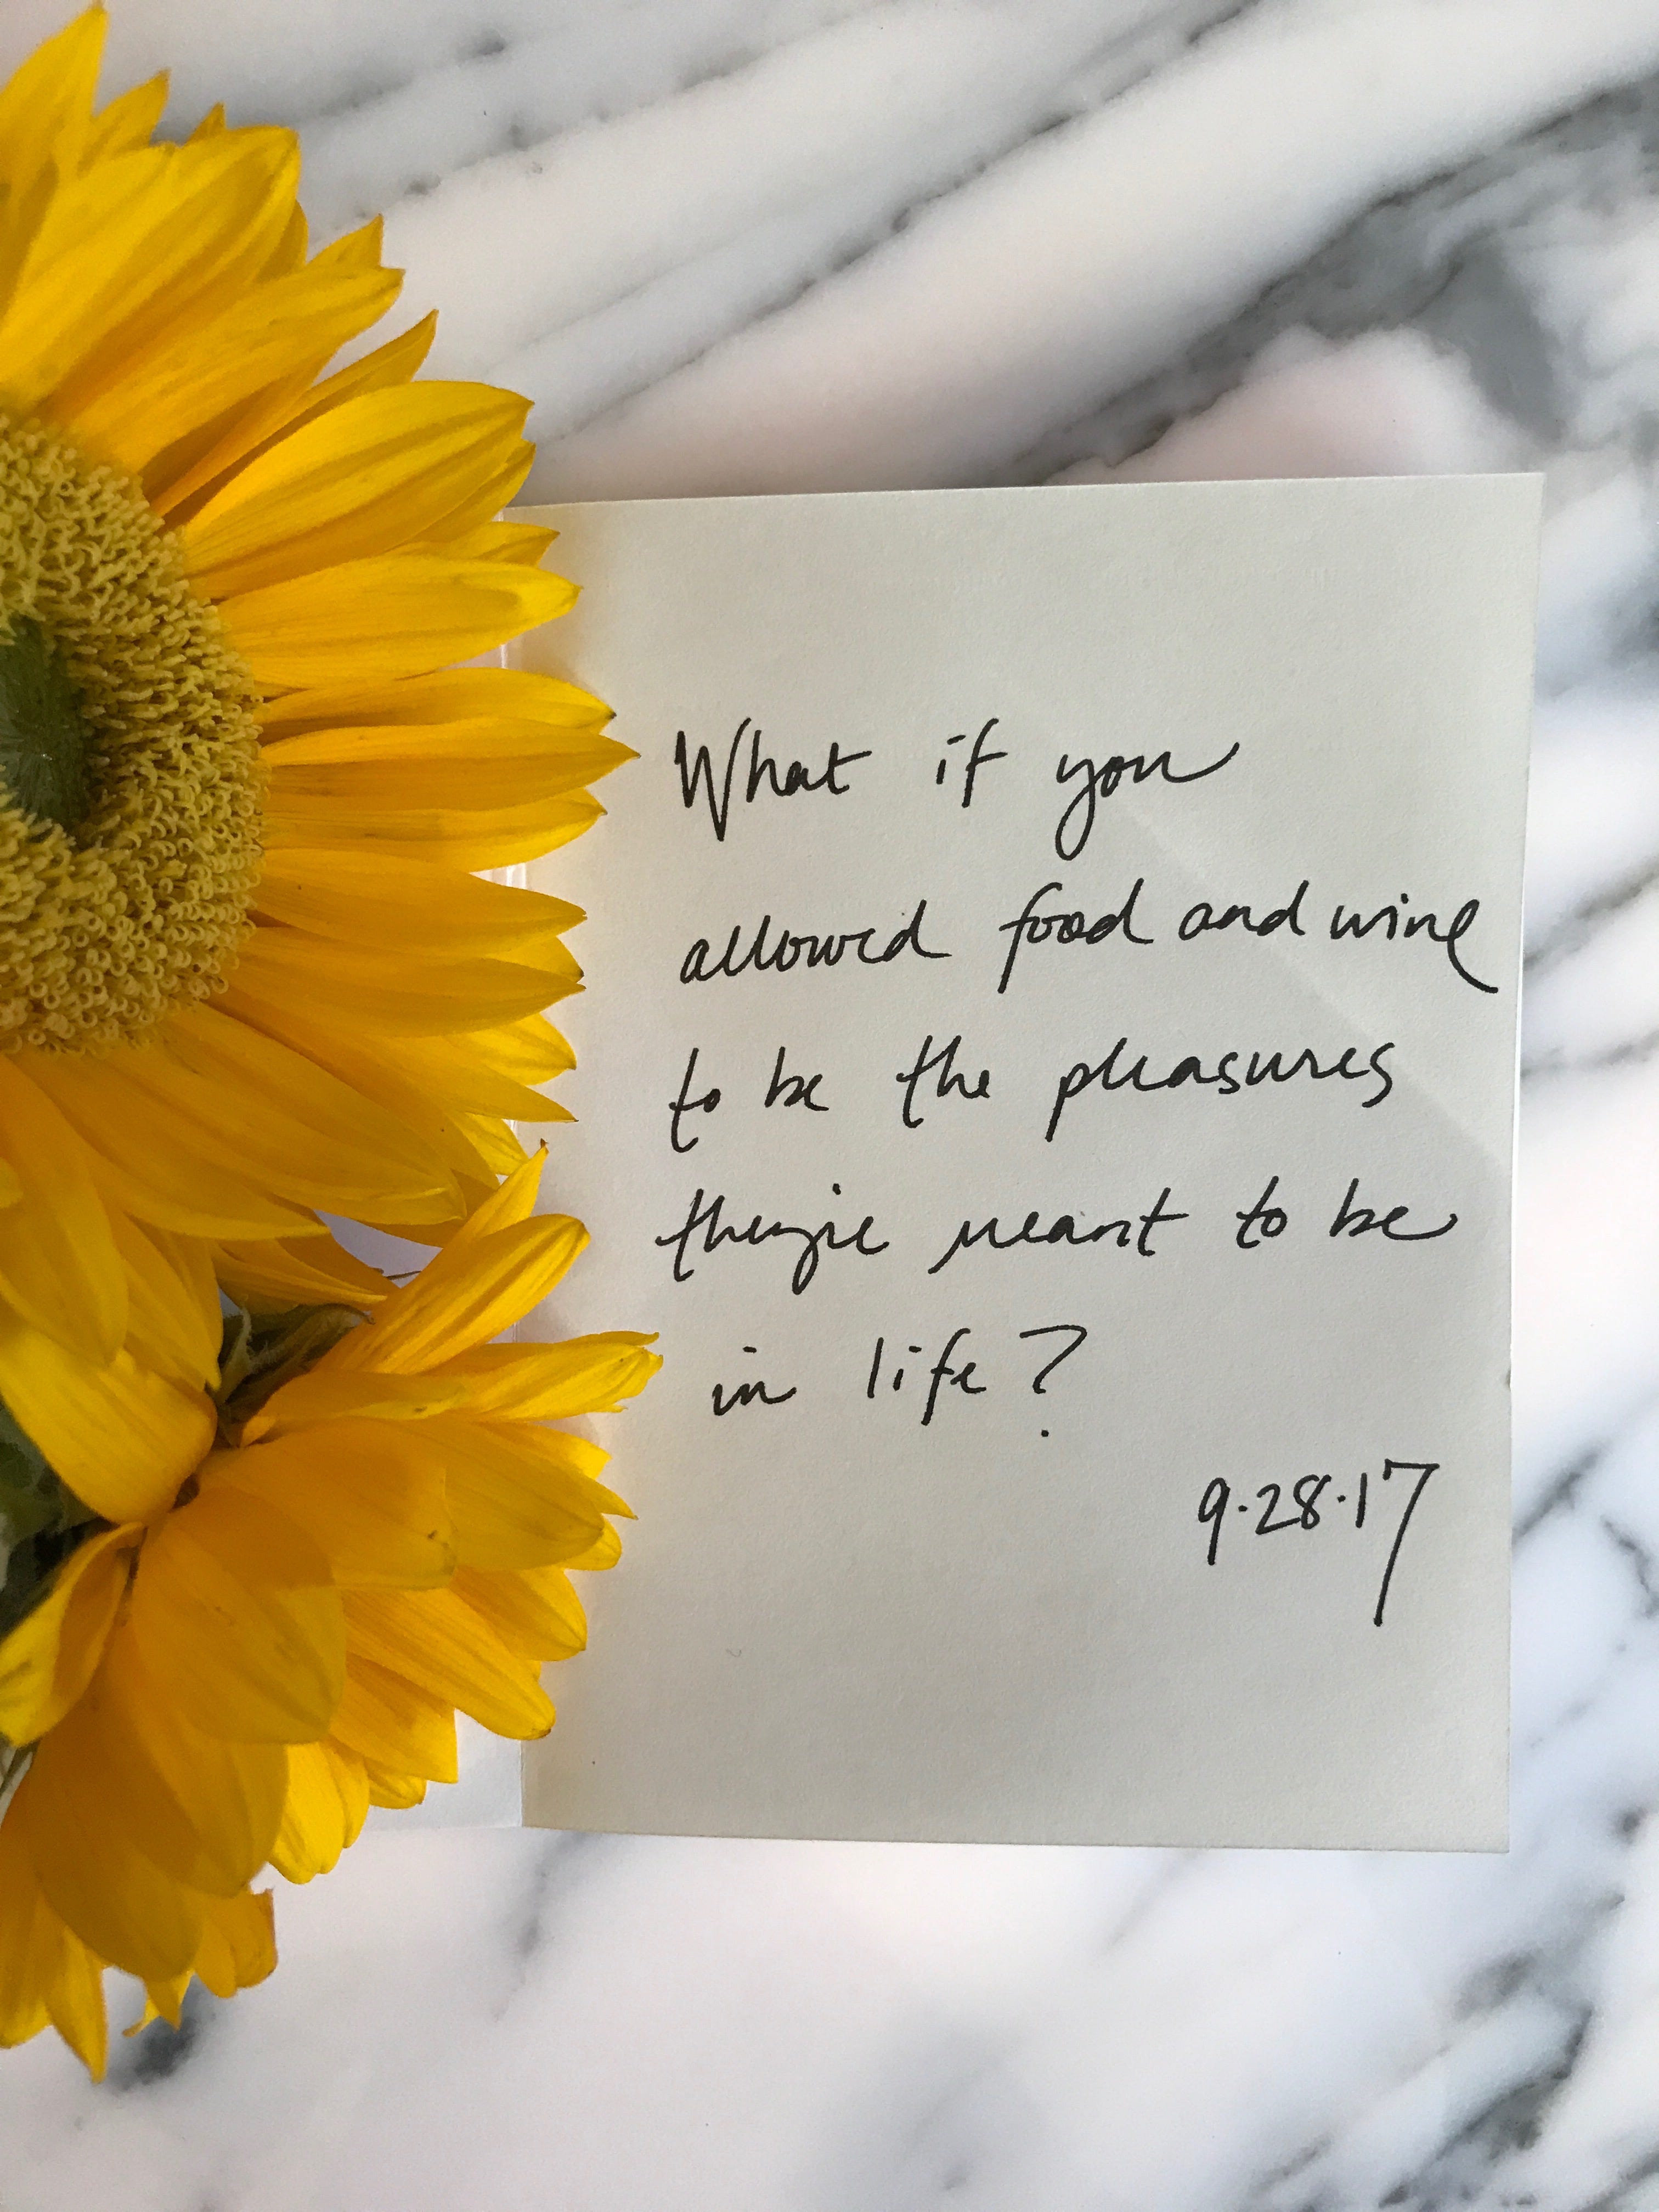 What if you
allowed food and wine
to be the pleasures
they're meant to be
in life?
9.28.17